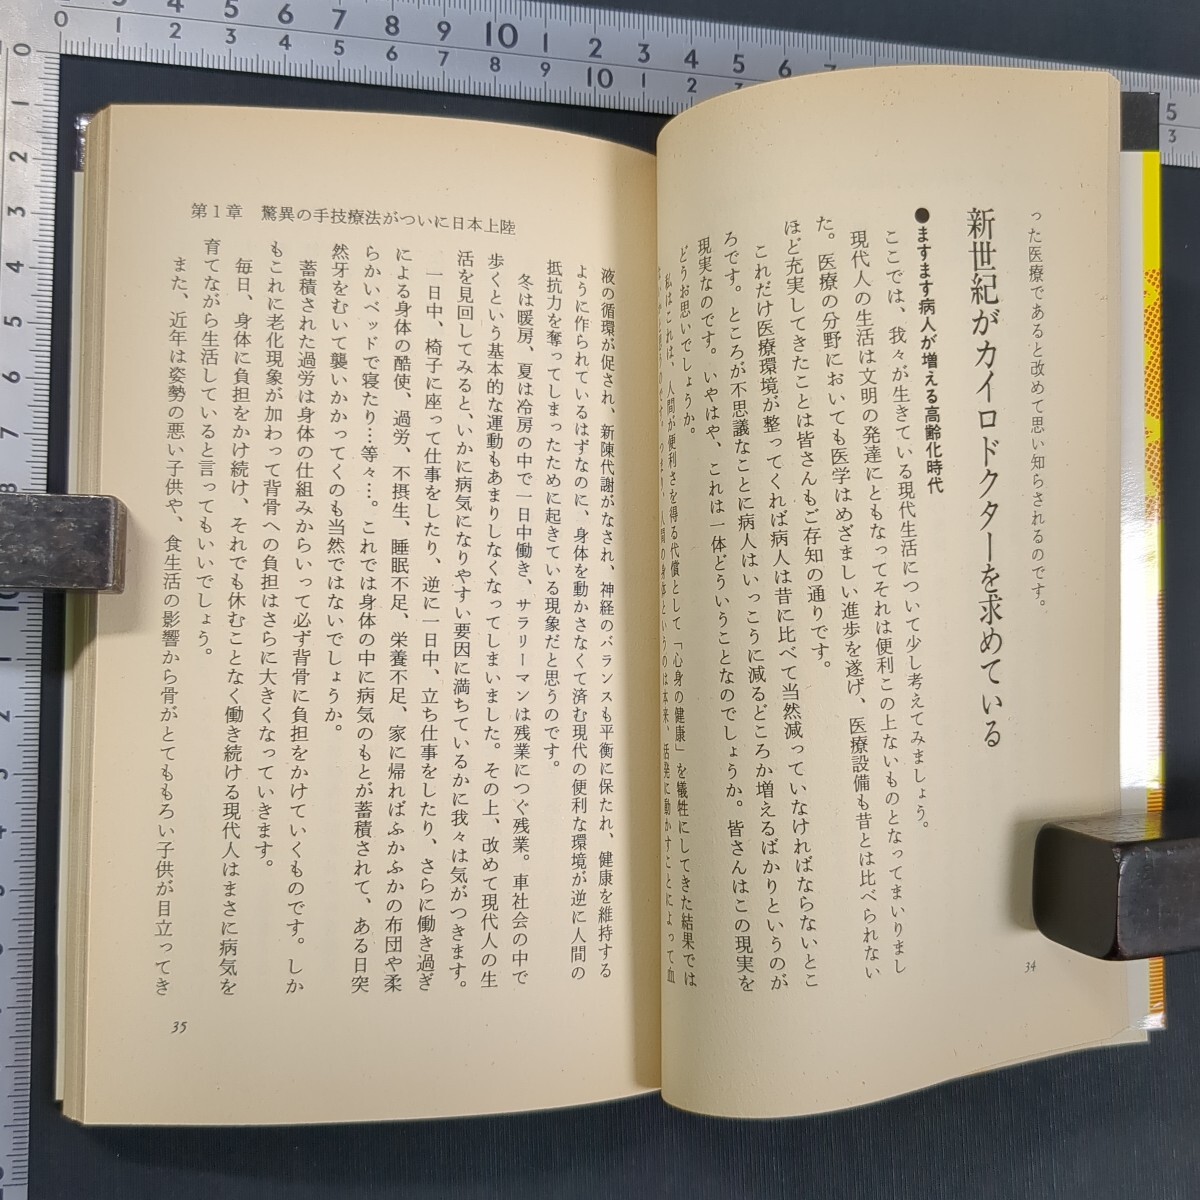 った医療であると改めて思い知らされるのです。
新世紀がカイロドクターを求めている
●ますます病人が増える高齢化時代
ここでは、我々が生きている現代生活について少し考えてみましょう。
現代人の生活は文明の発達にともなってそれは便利この上ないものとなってまいりまし
た。医療の分野においても医学はめざましい進歩を遂げ、医療設備も昔とは比べられない
ほど充実してきたことは皆さんもご存知の通りです。
これだけ医療環境が整ってくれば病人は昔に比べて当然減っていなければならないとこ
ろです。ところが不思議なことに病人はいっこうに減るどころか増えるばかりというのが
現実なのです。いやはや、これは一体どういうことなのでしょうか。皆さんはこの現実を
どうお思いでしょうか。
私はこれは、人間が便利さを得る代償として「心身の健康」を犠牲にしてきた結果では
人間の身体というのは本来、活発に動かすことによって血
34
第1章 驚異の手技療法がついに日本上陸
液の循環が促され、新陳代謝がなされ、神経のバランスも平衡に保たれ、健康を維持する
ように作られているはずなのに、身体を動かさなくて済む現代の便利な環境が逆に人間の
抵抗力を奪ってしまったために起きている現象だと思うのです。
冬は暖房、夏は冷房の中で一日中働き、サラリーマンは残業につぐ残業。車社会の中で
歩くという基本的な運動もあまりしなくなってしまいました。その上、改めて現代人の生
活を見回してみると、いかに病気になりやすい要因に満ちているかに我々は気がつきます。
一日中、椅子に座って仕事をしたり、逆に一日中、立ち仕事をしたり、さらに働き過ぎ
による身体の酷使、過労、不摂生、睡眠不足、栄養不足、家に帰ればふかふかの布団や柔
らかいベッドで寝たり…等々…。これでは身体の中に病気のもとが蓄積されて、ある日突
然牙をむいて襲いかかってくのも当然ではないでしょうか。
蓄積された過労は身体の仕組みからいって必ず背骨に負担をかけていくものです。しか
もこれに老化現象が加わって背骨への負担はさらに大きくなっていきます。
毎日、身体に負担をかけ続け、それでも休むことなく働き続ける現代人はまさに病気を
育てながら生活していると言ってもいいでしょう。
また、近年は姿勢の悪い子供や、食生活の影響から骨がとてももろい子供が目立ってき
35